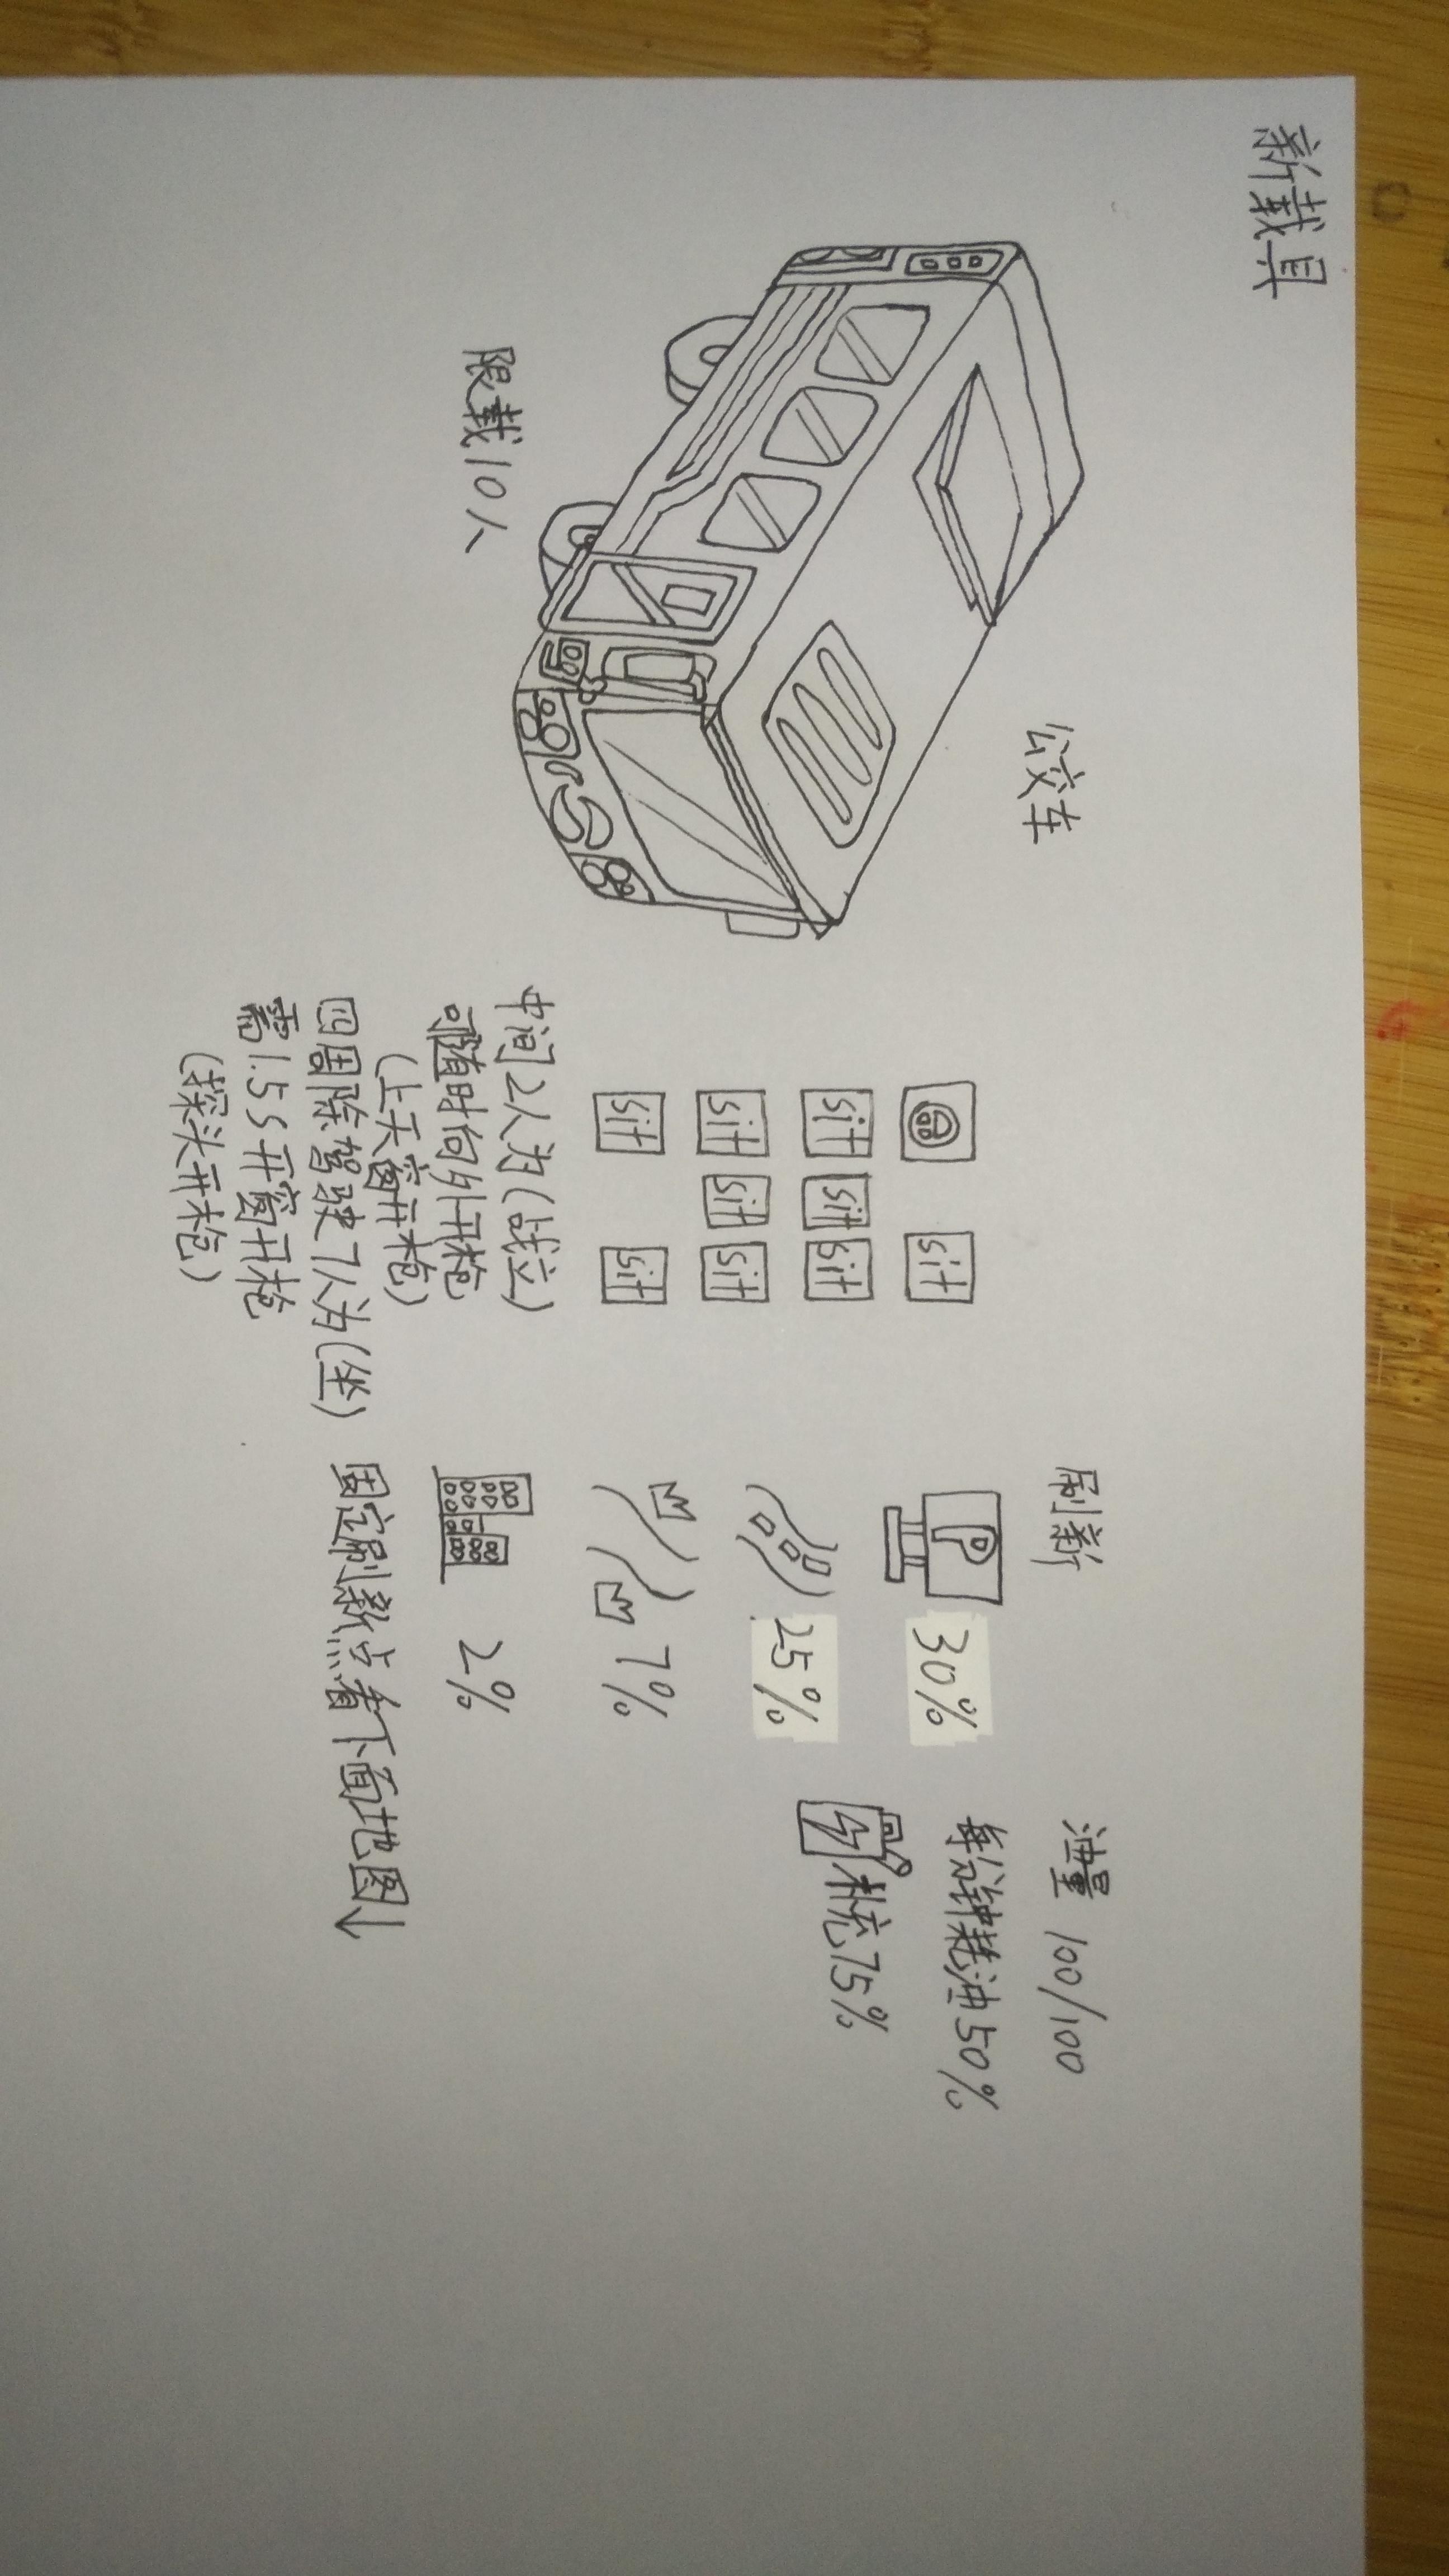 新载具
公交车
限载10人
sit
sit
sit
sit
sit
sit
sit
sit
sit
中间2人为(战立)
可随时向外开枪
(上天窗开枪)
四周除驾驶7人为(坐)
需1.5s开窗开枪
(探头开枪)
刷新
P
30%
25%
7%
2%
固定刷新点看下面地图↓
油量 100/100
每分钟耗油50%
补充75%